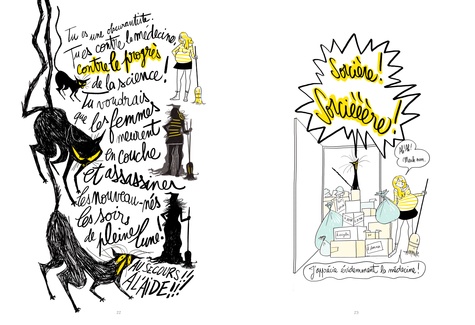 Tu es une obscurantiste.
Tu es contre la médecine,
contre le progrès
de la science!
Tu voudrais
que les femmes
meurent
en couche
et assassiner
les nouveau-nés
les soirs
de pleine
lune!
AU SECOURS!!
À L'AIDE!!!
22
Sorcière!
Sorciéére!
Mais non
J'apprécie évidemment la médecine!
23